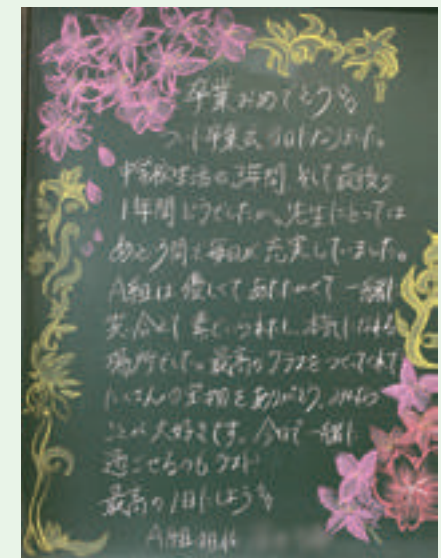 卒業おめでとう!!
ついに卒業式の日がきました。
中学校生活の3年間 そして最後の
1年間どうでしたか。先生にとっては
あっという間で毎日が充実していました。
A組は優しくてあたたかくて一緒に
笑い合えて 素でいられるし、本気になれる
場所でした。最高のクラスをつくってくれて
たくさんの笑顔をありがとう。みんなの
ことが大好きです。今日で一緒に
過ごせるのもラスト
最高の1日にしよう!!
A組担任